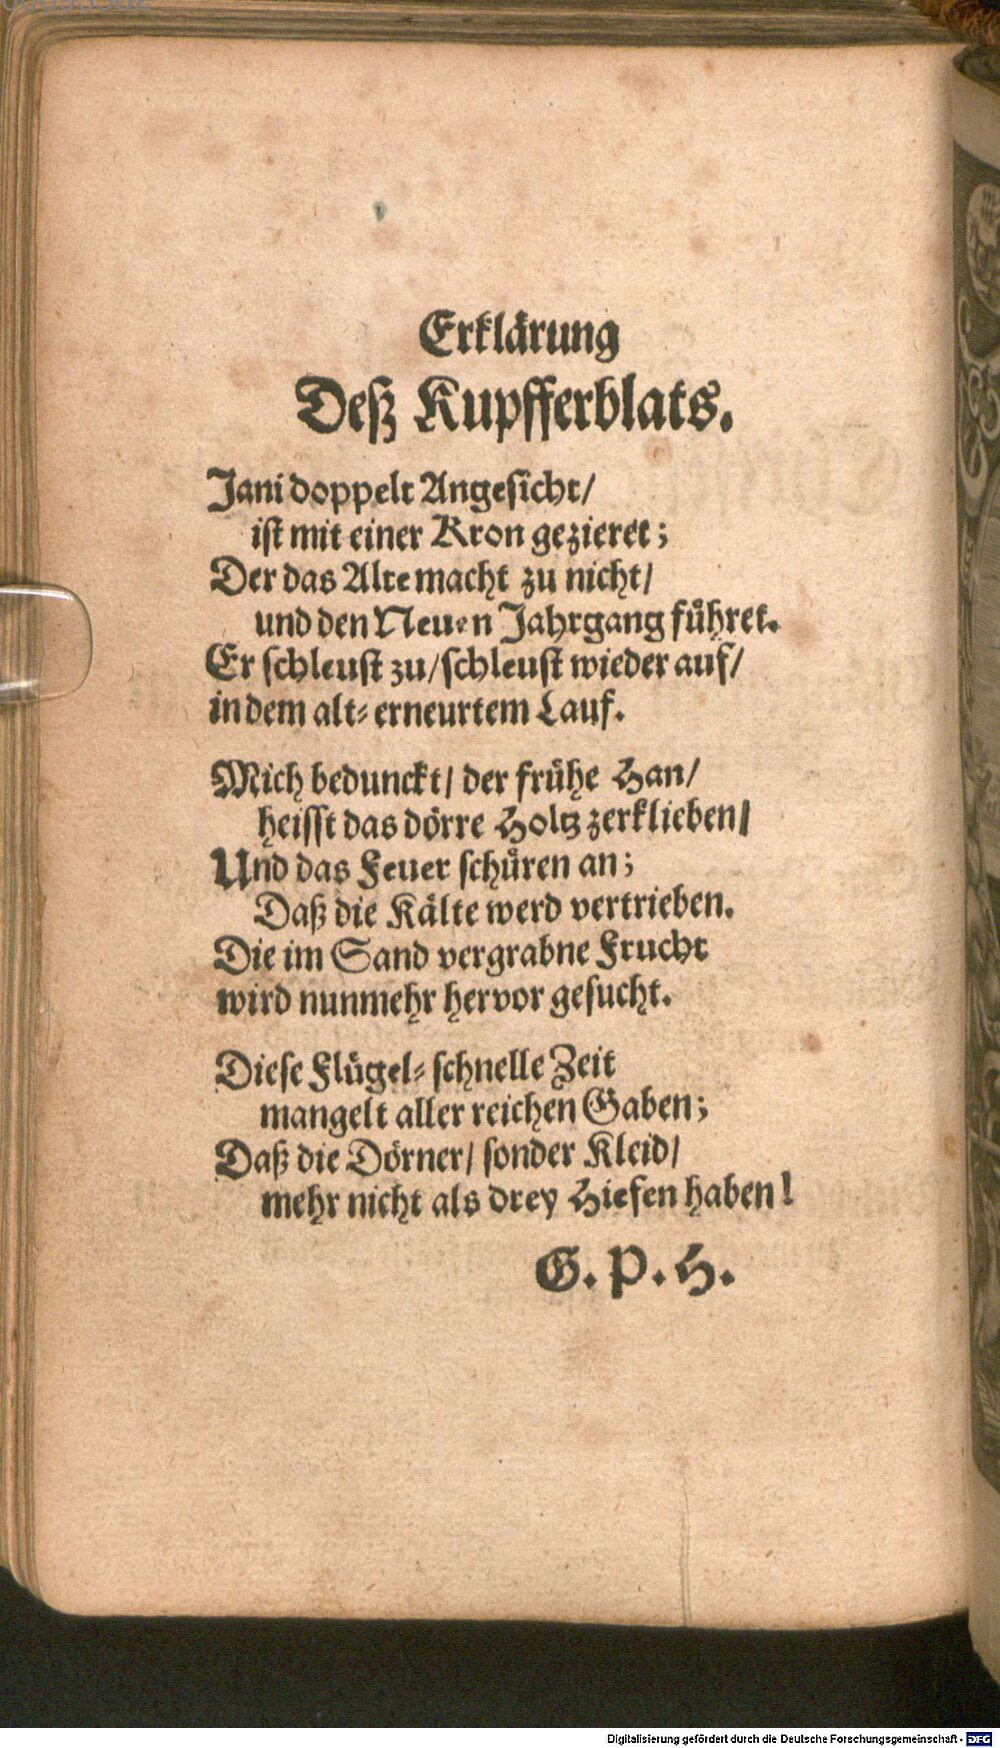 Erklärung
Deß Kupfferblats.
Jani doppelt Angesicht/
ist mit einer Kron gezieret;
Der das Alte macht zu nicht/
und den Neuen Jahrgang führet.
Er schleust zu/ schleust wieder auf/
in dem alt-erneurtem Lauf.
Mich bedunckt/ der frühe Han/
heisst das dörre Holtz zerklieben/
Und das Feuer schüren an;
Daß die Kälte werd vertrieben.
Die im Sand vergrabne Frucht
wird nunmehr hervor gesucht.
Diese Flügel-schnelle Zeit
mangelt aller reichen Gaben;
Daß die Dörner/ sonder Kleid/
mehr nicht als drey Hiefen haben!
G. P. H.
Digitalisierung gefördert durch die Deutsche Forschungsgemeinschaft - DFG